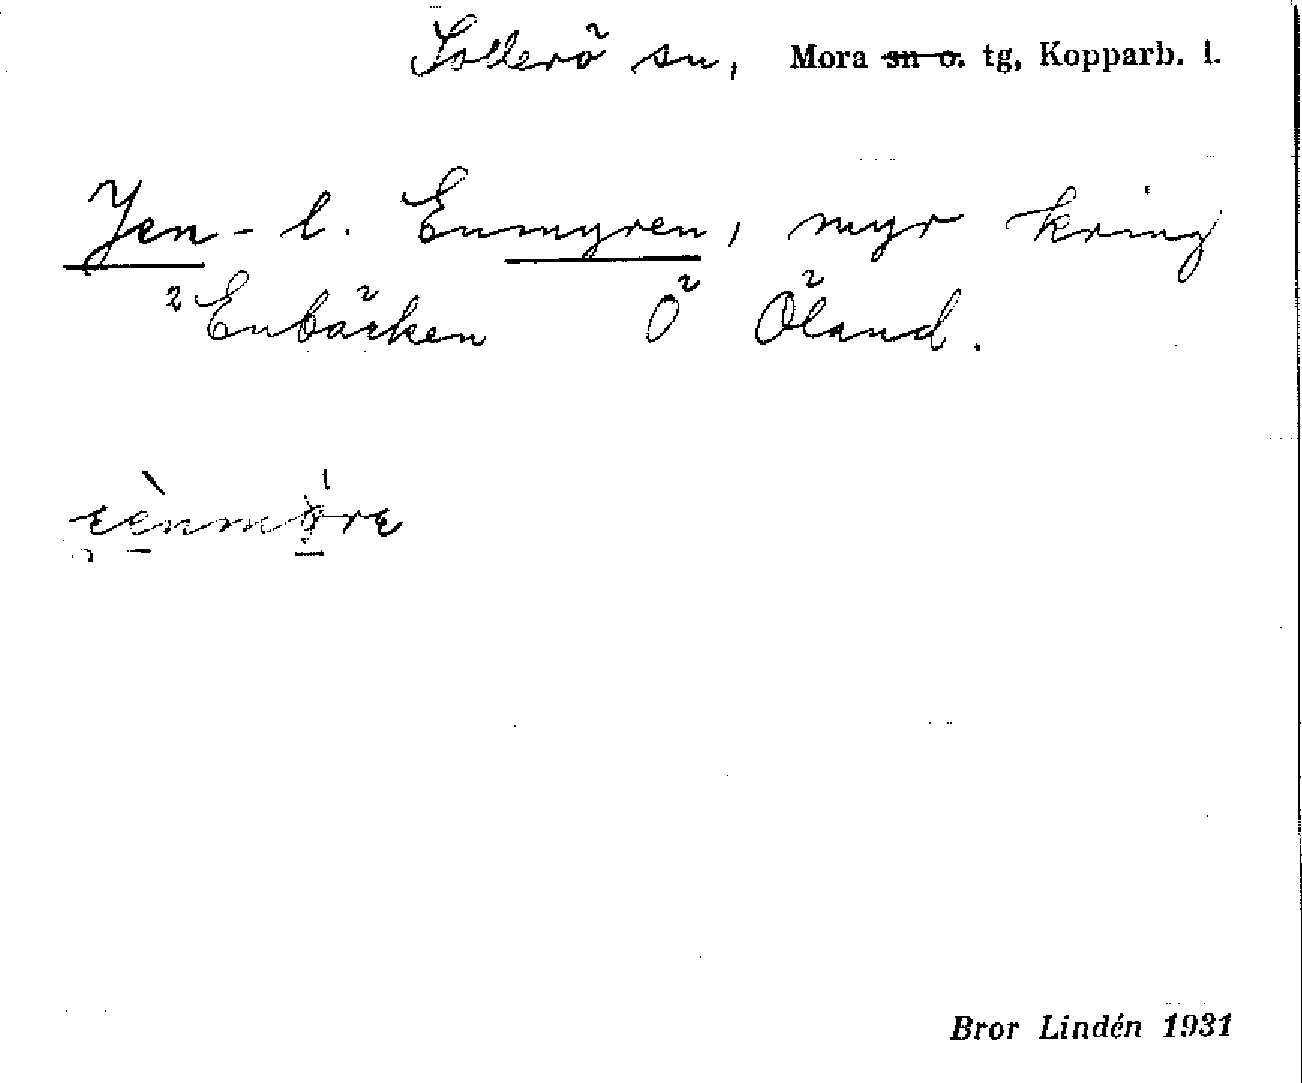 Sollerö sn, Mora sn o. tg, Kopparb. l.
Jen- l. Enmyren, myr kring
2 Enbäcken Ö Öland.
Bror Lindén 1931